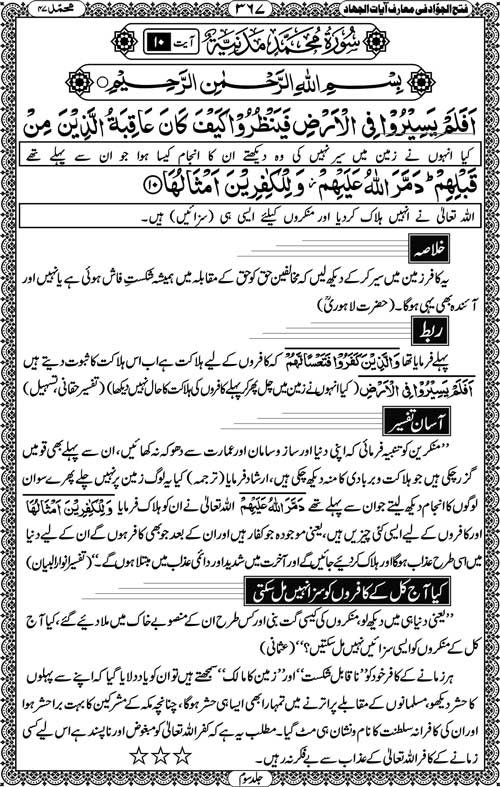 فتح الجوّاد فی معارف آیات الجهاد ۳۶۷ محمّد ۴۷
سُوْرَةُ مُحَمَّدٍ مَدَنِيَّةٌ آیت ۱۰
بِسْمِ اللهِ الرَّحْمٰنِ الرَّحِيْمِ
اَفَلَمْ يَسِيْرُوْا فِي الْاَرْضِ فَيَنْظُرُوْا كَيْفَ كَانَ عَاقِبَةُ الَّذِيْنَ مِنْ
کیا انہوں نے زمین میں سیر نہیں کی وہ دیکھتے ان کا انجام کیسا ہوا جو ان سے پہلے تھے
قَبْلِهِمْ دَمَّرَ اللهُ عَلَيْهِمْ وَلِلْكٰفِرِيْنَ اَمْثَالُهَا ۱۰
اللہ تعالیٰ نے انہیں ہلاک کردیا اور منکروں کیلئے ایسی ہی (سزائیں) ہیں۔
خلاصہ
یہ کافر زمین میں سیر کر کے دیکھ لیں کہ مخالفین حق کو حق کے مقابلہ میں ہمیشہ شکستِ فاش ہوئی ہے یا نہیں اور
آئندہ بھی یہی ہوگا۔ (حضرت لاہوریؒ)
ربط
پہلے فرمایا تھا وَالَّذِيْنَ كَفَرُوْا فَتَعْسًا لَّهُمْ کہ کافروں کے لیے ہلاکت ہے اب اس ہلاکت کا ثبوت دیتے ہیں
اَفَلَمْ يَسِيْرُوْا فِي الْاَرْضِ (کیا انہوں نے زمین میں چل پھر کر پہلے کافروں کی ہلاکت کا حال نہیں دیکھا) (تفسیر حقانی، تسہیل)
آسان تفسیر
”منکرین کو تنبیہ فرمائی کہ اپنی دنیا اور ساز و سامان اور عمارت سے دھوکہ نہ کھائیں، ان سے پہلے بھی قومیں
گزر چکی ہیں جو ہلاکت و بربادی کا منہ دیکھ چکی ہیں، ارشاد فرمایا (ترجمہ) کیا یہ لوگ زمین پر نہیں چلے پھرے سو ان
لوگوں کا انجام دیکھ لیتے جو ان سے پہلے تھے دَمَّرَ اللهُ عَلَيْهِمْ اللہ تعالیٰ نے ان کو ہلاک فرمایا وَلِلْكٰفِرِيْنَ اَمْثَالُهَا
اور کافروں کے لیے ایسی کئی چیزیں ہیں، یعنی موجودہ جو کفار ہیں اور ان کے بعد جو بھی کافر ہوں گے ان کے لیے دنیا
میں اسی طرح عذاب ہوگا اور ہلاک کردیئے جائیں گے اور آخرت میں شدید اور دائمی عذاب میں مبتلا ہوں گے۔“ (تفسیر انوار البیان)
کیا آج کل کے کافروں کو سزا نہیں مل سکتی
”یعنی دنیا ہی میں دیکھ لو، منکروں کی کیسی گت بنی اور کس طرح ان کے منصوبے خاک میں ملا دیئے گئے، کیا آج
کل کے منکروں کو ایسی سزائیں نہیں مل سکتیں؟“ (عثمانی)
ہر زمانے کے کافر خود کو ”ناقابل شکست“ اور ”زمین کا مالک“ سمجھتے ہیں تو ان کو یاد دلایا گیا کہ اپنے سے پہلوں
کا حشر دیکھو، مسلمانوں کے مقابلے پر اترنے میں تمہارا بھی ایسا ہی حشر ہوگا، چنانچہ مکہ کے مشرکین کا بہت برا حشر ہوا
اور ان کی کافرانہ سلطنت کا نام و نشان ہی مٹ گیا۔ مطلب یہ ہے کہ کفر اللہ تعالیٰ کو مبغوض اور ناپسند ہے اس لیے کسی
زمانے کے کافر اللہ تعالیٰ کے عذاب سے بے فکر نہ رہیں۔
جلد سوم